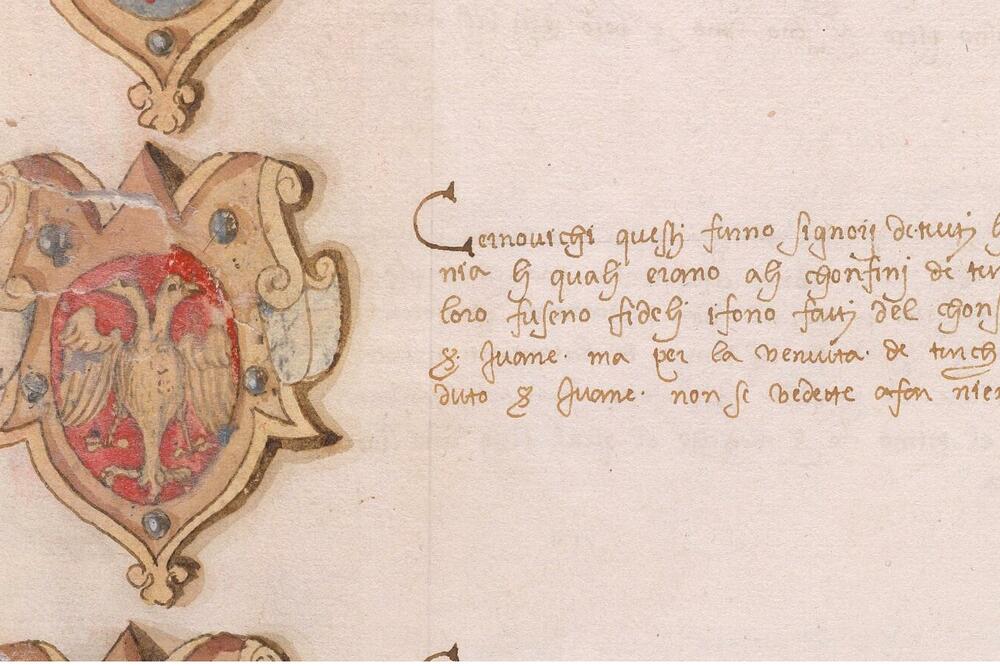 Cernovichi questi funno signorj de tutj
nia lj qualj erano alj chonfinj de
loro fuseno fidelj i fono fattj del
Juane. ma per la venuta. de turch
duto Juane. non se vedette afar nien